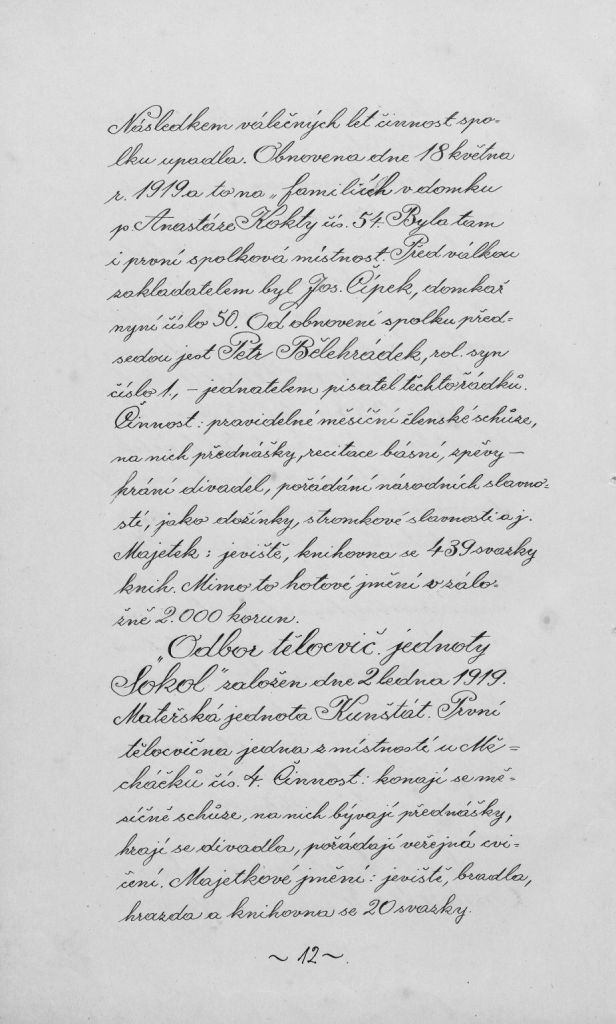 Následkem válečných let činnost spo-
lku upadla. Obnovena dne 18 května
r. 1919 a to na „familiích v domku
p Anastáze Kokty čís. 54. Byla tam
i první spolková místnost. Před válkou
zakladatelem byl Jos. Čípek, domkař
nyní číslo 50. Od obnovení spolku před-
sedou jest Petr Bělehrádek, rol. syn
číslo 1., – jednatelem pisatel těchto řádků.
Činnost: pravidelné měsíční členské schůze,
na nich přednášky, recitace básní, zpěvy –
hrání divadel, pořádání národních slavno-
stí, jako dožínky, stromkové slavnosti a j.
Majetek: jeviště, knihovna se 439 svazky
knih. Mimo to hotové jmění v zálo-
žně 2.000 korun.
„Odbor tělocvič. jednoty
Sokol" založen dne 2 ledna 1919.
Mateřská jednota Kunštát. První
tělocvična jedna z místností u Mě-
cháčků čís. 4. Činnost: konají se mě-
síčně schůze, na nich bývají přednášky,
hrají se divadla, pořádají veřejná cvi-
čení. Majetkové jmění: jeviště, bradla,
hrazda a knihovna se 20 svazky.
~ 12 ~.